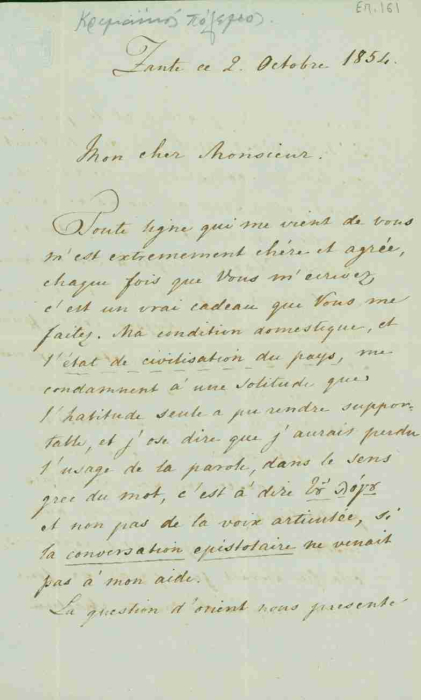 Επ. 161
Κριμαϊκός πόλεμος.
Zante ce 2. Octobre 1854.
Mon cher Monsieur.
Toute ligne qui me vient de vous
m'est extremement chére et agrée,
chaque fois que Vous m'ecrivez
c'est un vrai cadeau que Vous me
faites. Ma condition domestique, et
l'état de civilisation du pays, me
condamnent à une solitude que
l'habitude seule a pu rendre suppor-
table, et j'ose dire que j'aurais perdu
l'usage de la parole, dans le sens
grec du mot, c'est à dire τοῦ λόγου
et non pas de la voix articulée, si
la conversation epistolaire ne venait
pas à mon aide.
La question d'orient nous presente